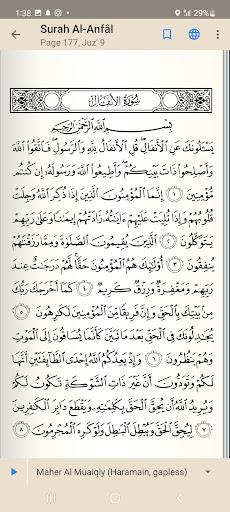 1:38
81%
Surah Al-Anfâl
Page 177, Juz' 9
سُورَةُ الأَنفَالِ
بِسْمِ ٱللَّهِ ٱلرَّحْمَٰنِ ٱلرَّحِيمِ
يَسْـَٔلُونَكَ عَنِ ٱلْأَنفَالِ ۖ قُلِ ٱلْأَنفَالُ لِلَّهِ وَٱلرَّسُولِ ۖ فَٱتَّقُوا۟ ٱللَّهَ
وَأَصْلِحُوا۟ ذَاتَ بَيْنِكُمْ ۖ وَأَطِيعُوا۟ ٱللَّهَ وَرَسُولَهُۥٓ إِن كُنتُم
مُّؤْمِنِينَ ١ إِنَّمَا ٱلْمُؤْمِنُونَ ٱلَّذِينَ إِذَا ذُكِرَ ٱللَّهُ وَجِلَتْ
قُلُوبُهُمْ وَإِذَا تُلِيَتْ عَلَيْهِمْ ءَايَٰتُهُۥ زَادَتْهُمْ إِيمَٰنًا وَعَلَىٰ رَبِّهِمْ
يَتَوَكَّلُونَ ٢ ٱلَّذِينَ يُقِيمُونَ ٱلصَّلَوٰةَ وَمِمَّا رَزَقْنَٰهُمْ
يُنفِقُونَ ٣ أُو۟لَٰٓئِكَ هُمُ ٱلْمُؤْمِنُونَ حَقًّا ۚ لَّهُمْ دَرَجَٰتٌ عِندَ
رَبِّهِمْ وَمَغْفِرَةٌ وَرِزْقٌ كَرِيمٌ ٤ كَمَآ أَخْرَجَكَ رَبُّكَ
مِنۢ بَيْتِكَ بِٱلْحَقِّ وَإِنَّ فَرِيقًا مِّنَ ٱلْمُؤْمِنِينَ لَكَٰرِهُونَ ٥
يُجَٰدِلُونَكَ فِى ٱلْحَقِّ بَعْدَ مَا تَبَيَّنَ كَأَنَّمَا يُسَاقُونَ إِلَى ٱلْمَوْتِ
وَهُمْ يَنظُرُونَ ٦ وَإِذْ يَعِدُكُمُ ٱللَّهُ إِحْدَى ٱلطَّآئِفَتَيْنِ أَنَّهَا
لَكُمْ وَتَوَدُّونَ أَنَّ غَيْرَ ذَاتِ ٱلشَّوْكَةِ تَكُونُ لَكُمْ
وَيُرِيدُ ٱللَّهُ أَن يُحِقَّ ٱلْحَقَّ بِكَلِمَٰتِهِۦ وَيَقْطَعَ دَابِرَ ٱلْكَٰفِرِينَ
٧ لِيُحِقَّ ٱلْحَقَّ وَيُبْطِلَ ٱلْبَٰطِلَ وَلَوْ كَرِهَ ٱلْمُجْرِمُونَ ٨
Maher Al Muaiqly (Haramain, gapless)